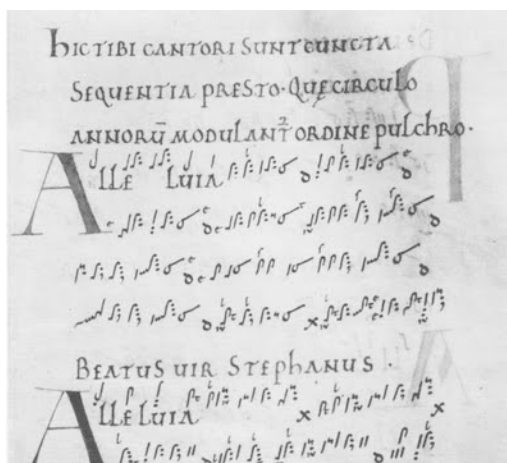 HIC TIBI CANTORI SUNT CUNCTA
SEQUENTIA PRESTO · QUĘ CIRCULO
ANNORŪ MODULANT᷑ ORDINE PULCHRO ·
ALLE LUIA
BEATUS UIR STEPHANUS ·
ALLELUIA